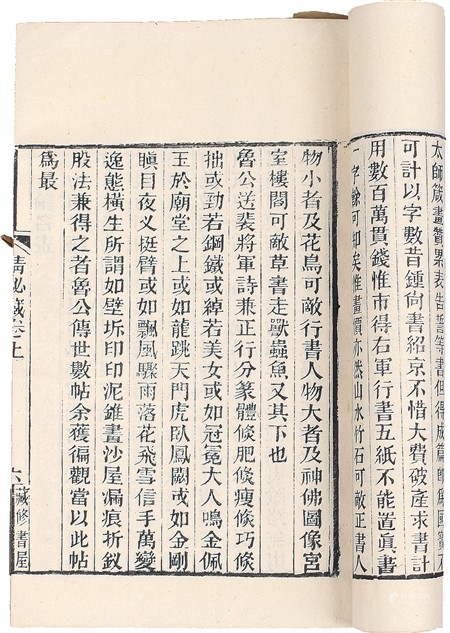 太師箴畫贊累表告誓等書但得成篇即爲國寶不
可計以字數昔鍾向書紹京不惜大費破產求書計
用數百萬貫錢惟市得右軍行書五紙不能置眞書
一字餘可知矣惟畫價亦然山水竹石可敵正書人
物小者及花鳥可敵行書人物大者及神佛圖像宮
室樓閣可敵草書走獸蟲魚又其下也
魯公送裴將軍詩兼正行分篆體倐肥倐瘦倐巧倐
拙或勁若鋼鐵或綽若美女或如冠冕大人鳴金佩
玉於廟堂之上或如龍跳天門虎臥鳳闕或如金剛
瞋目夜义挺臂或如飄風驟雨落花飛雪信手萬變
逸態橫生所謂如壁坼印印泥錐畫沙屋漏痕折釵
股法兼得之者魯公傳世數帖余獲徧觀當以此帖
爲最
清祕藏卷上
六
藏修書屋